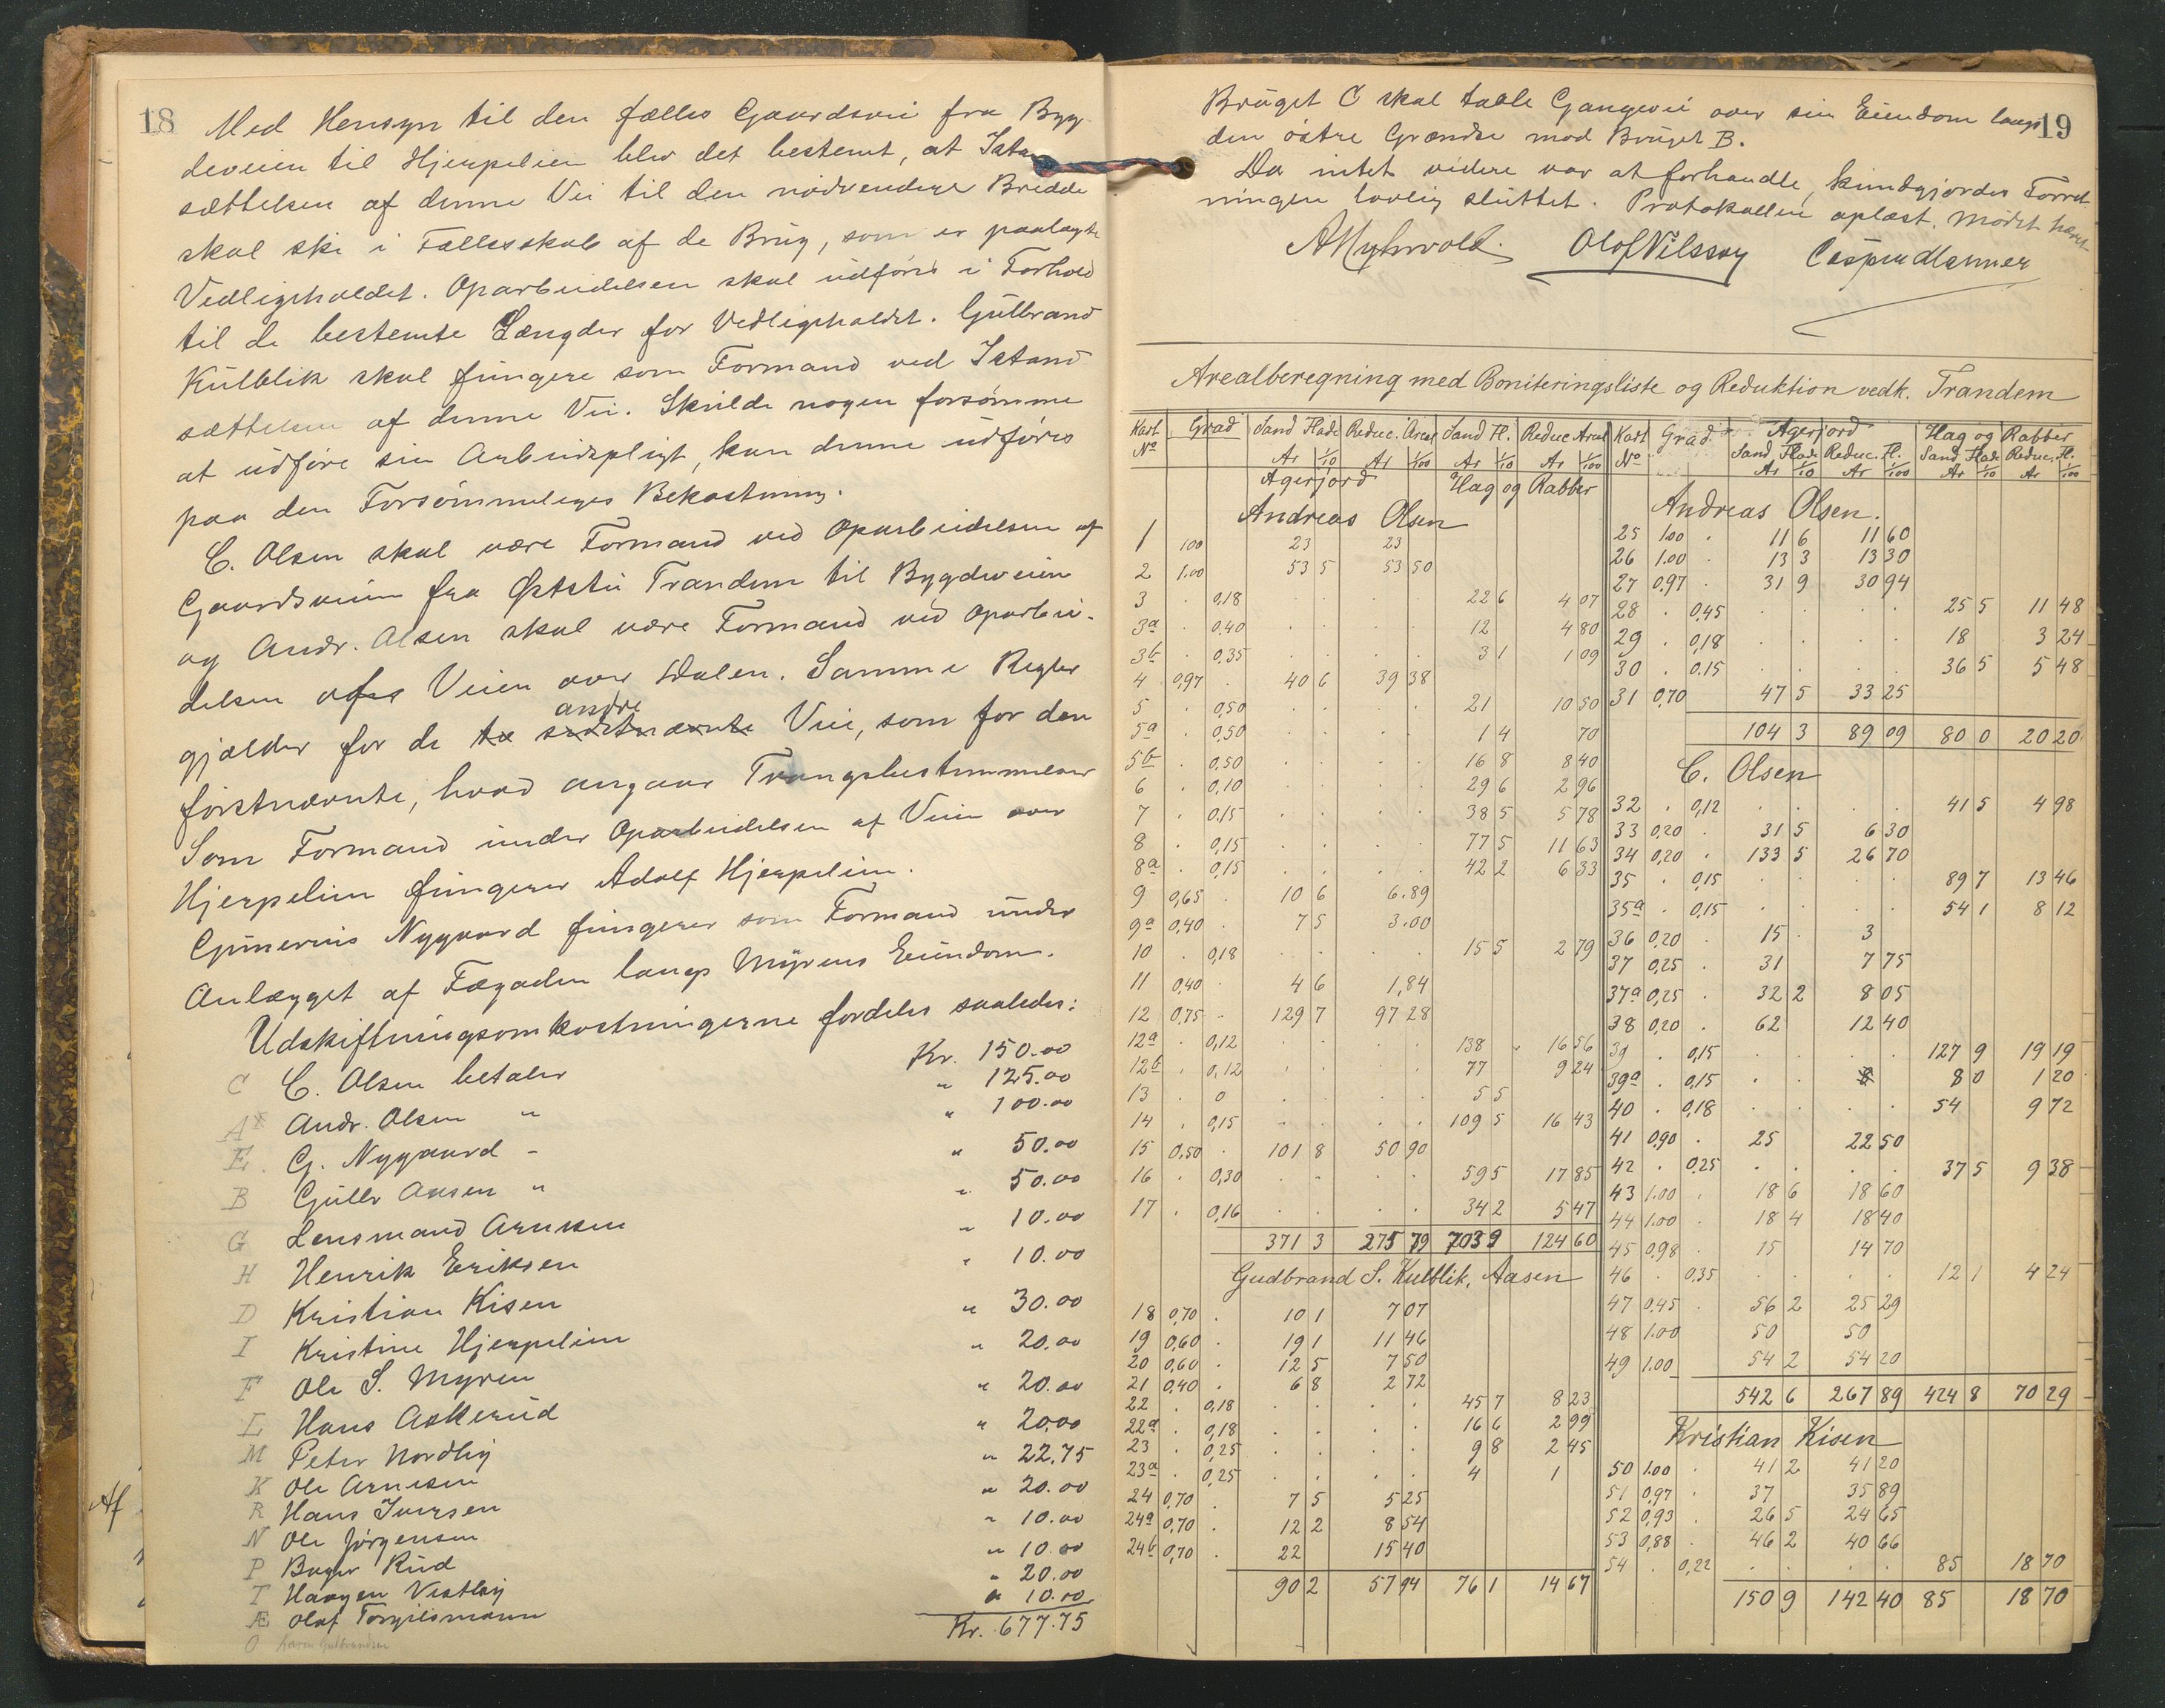 18
Med Hensyn til den fælles Gaardsvei fra Byg
deveien til Hjerpelien blev det bestemt, at Istand
sættelsen af denne Vei til den nødvendige Bredde
skal ske i Fællesskab af de Brug, som er paalagte
Vedligeholdet. Oparbeidelsen skal udføres i Forhold
til de bestemte Længder for Vedligeholdet. Gulbrand
Kulblik skal fungere som Formand ved Istand
sættelsen af denne Vei. Skulde nogen forsømme
at udføre sin Arbeidspligt, kan denne udføres
paa den Forsømmeliges Bekostning.
C. Olsen skal være Formand ved Oparbeidelsen af
Gaardsveien fra Øststu Trandem til Bygdeveien
og Andr. Olsen skal være Formand ved Oparbei-
delsen af Veien over Dalen. Samme Regler
andre
gjælder for de to sidstnævnte Veie, som for den
førstnævnte, hvad angaar Tvangsbestemmelser
Som Formand under Oparbeidelsen af Veien over
Hjerpelien fungerer Adolf Hjerpelien.
Gunerius Nygaard fungerer som Formand under
Anlægget af Fægaden langs Myrens Eiendom.
Udskiftningsomkostningerne fordeles saaledes:
C C. Olsen betaler Kr. 150.00
A Andr. Olsen " " 125.00
E G. Nygaard - " 100.00
B Gulbr Aasen " " 50.00
G Lensmand Arnesen " 50.00
H Henrik Eriksen " 10.00
D Kristian Kisen " 10.00
I Kristine Hjerpelien " 30.00
F Ole S. Myren " 20.00
L Hans Askerud " 20.00
M Peter Nordby " 20.00
K Ole Arnesen " 22.75
R Hans Iversen " 20.00
N Ole Jørgensen " 10.00
P Bager Rud " 10.00
T Haagen Vestby " 20.00
Æ Olaf Torgilsmann " 10.00
O Karen Gulbrandsen
Kr. 677.75
Af
19
Bruget C skal taale Gangevei over sin Eiendom langs
den østre Grændse mod Bruget B.
Da intet videre var at forhandle, kundgjordes Forret
ningen lovlig sluttet. Protokollen oplæst. Mødet hævet
A Myhrvold. Olof Nilsson Casper Hanner
Arealberegning med Boniteringsliste og Reduktion vedk. Trandem
Kart No Grad Sand Flade Reduc. Areal Sand Fl. Reduc Areal
Ar 1/10 Ar 1/100 Ar 1/10 Ar 1/100
Agerjord Hag og Rabber
Andreas Olsen
1 1.00 23 23
2 1.00 53 5 53 50
3 . 0,18 22 6 4 07
3a . 0,40 12 4 80
3b . 0,35 3 1 1 09
4 0,97 . 40 6 39 38
5 . 0,50 21 10 50
5a . 0,50 1 4 70
5b . 0,50 16 8 8 40
6 . 0,10 29 6 2 96
7 . 0,15 38 5 5 78
8 . 0,15 77 5 11 63
8a . 0,15 42 2 6 33
9 0,65 . 10 6 6.89
9a 0,40 . 7 5 3.00
10 . 0,18 15 5 2 79
11 0,40 . 4 6 1,84
12 0,75 - 129 7 97 28
12a . 0,12 138 16 56
12b . 0,12 77 9 24
13 . 0 5 5
14 . 0,15 109 5 16 43
15 0,50 . 101 8 50 90
16 . 0,30 59 5 17 85
17 . 0,16 34 2 5 47
371 3 275 79 703 9 124 60
Gudbrand S. Kulblik, Aasen
18 0,70 . 10 1 7 07
19 0,60 . 19 1 11 46
20 0,60 . 12 5 7 50
21 0,40 . 6 8 2 72
22 . 0,18 45 7 8 23
22a . 0,18 16 6 2 99
23 . 0,25 9 8 2 45
23a . 0,25 4 1
24 0,70 . 7 5 5 25
24a 0,70 . 12 2 8 54
24b 0,70 . 22 15 40
90 2 57 94 76 1 14 67
Kart No Grad Agerjord Hag og Rabber
Sand Flade Reduc. Fl. Sand Flade Reduc. Fl.
Ar 1/10 Ar 1/100 Ar 1/10 Ar 1/100
Andreas Olsen.
25 1.00 . 11 6 11 60
26 1.00 . 13 3 13 30
27 0,97 . 31 9 30 94
28 . 0,45 25 5 11 48
29 . 0,18 18 3 24
30 . 0.15 36 5 5 48
31 0,70 47 5 33 25
104 3 89 09 80 0 20 20
C. Olsen
32 . 0,12 41 5 4 98
33 0,20 . 31 5 6 30
34 0,20 . 133 5 26 70
35 . 0,15 89 7 13 46
35a . 0,15 54 1 8 12
36 0,20 . 15 3
37 0,25 . 31 7 75
37a 0,25 . 32 2 8 05
38 0,20 . 62 12 40
39 . 0,15 127 9 19 19
39a . 0,15 8 0 1 20
40 . 0,18 54 9 72
41 0,90 . 25 22 50
42 . 0,25 37 5 9 38
43 1.00 . 18 6 18 60
44 1.00 . 18 4 18 40
45 0,98 . 15 14 70
46 . 0,35 12 1 4 24
47 0,45 . 56 2 25 29
48 1.00 50 50
49 1.00 54 2 54 20
542 6 267 89 424 8 70 29
Kristian Kisen
50 1.00 . 41 2 41 20
51 0,97 . 37 35 89
52 0,93 . 26 5 24 65
53 0,88 . 46 2 40 66
54 . 0,22 85 18 70
150 9 142 40 85 18 70